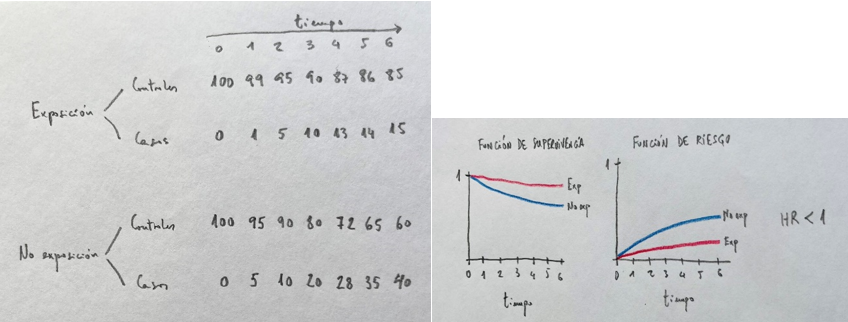 tiempo
0 1 2 3 4 5 6
Controles 100 99 95 90 87 86 85
Exposición
Casos 0 1 5 10 13 14 15
Controles 100 95 90 80 72 65 60
No exposición
Casos 0 5 10 20 28 35 40
FUNCIÓN DE SUPERVIVENCIA
1
Exp
No exp
0 1 2 3 4 5 6
tiempo
FUNCIÓN DE RIESGO
1
No exp
Exp
0 1 2 3 4 5 6
tiempo
HR < 1